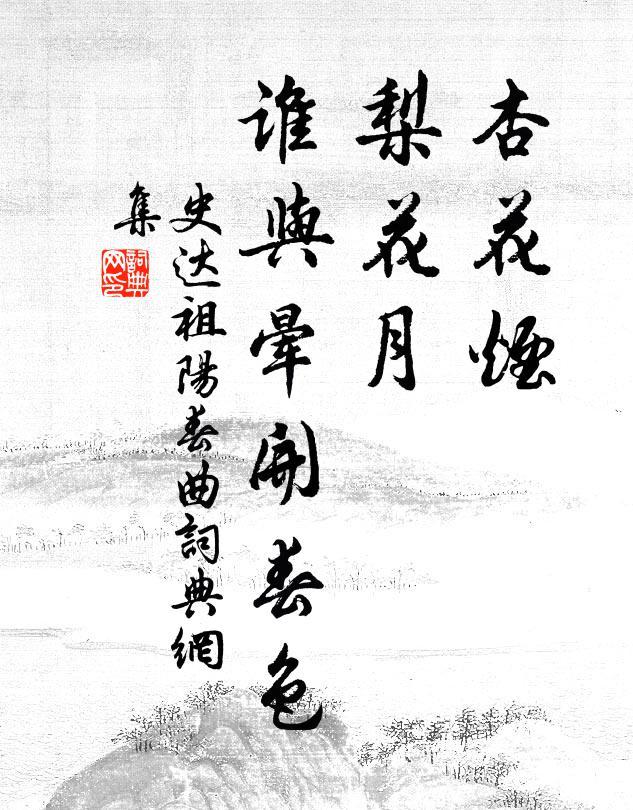 杏花煙
梨花月
誰與暈開春色
史达祖陽春曲詞典網
集
詞典
网印